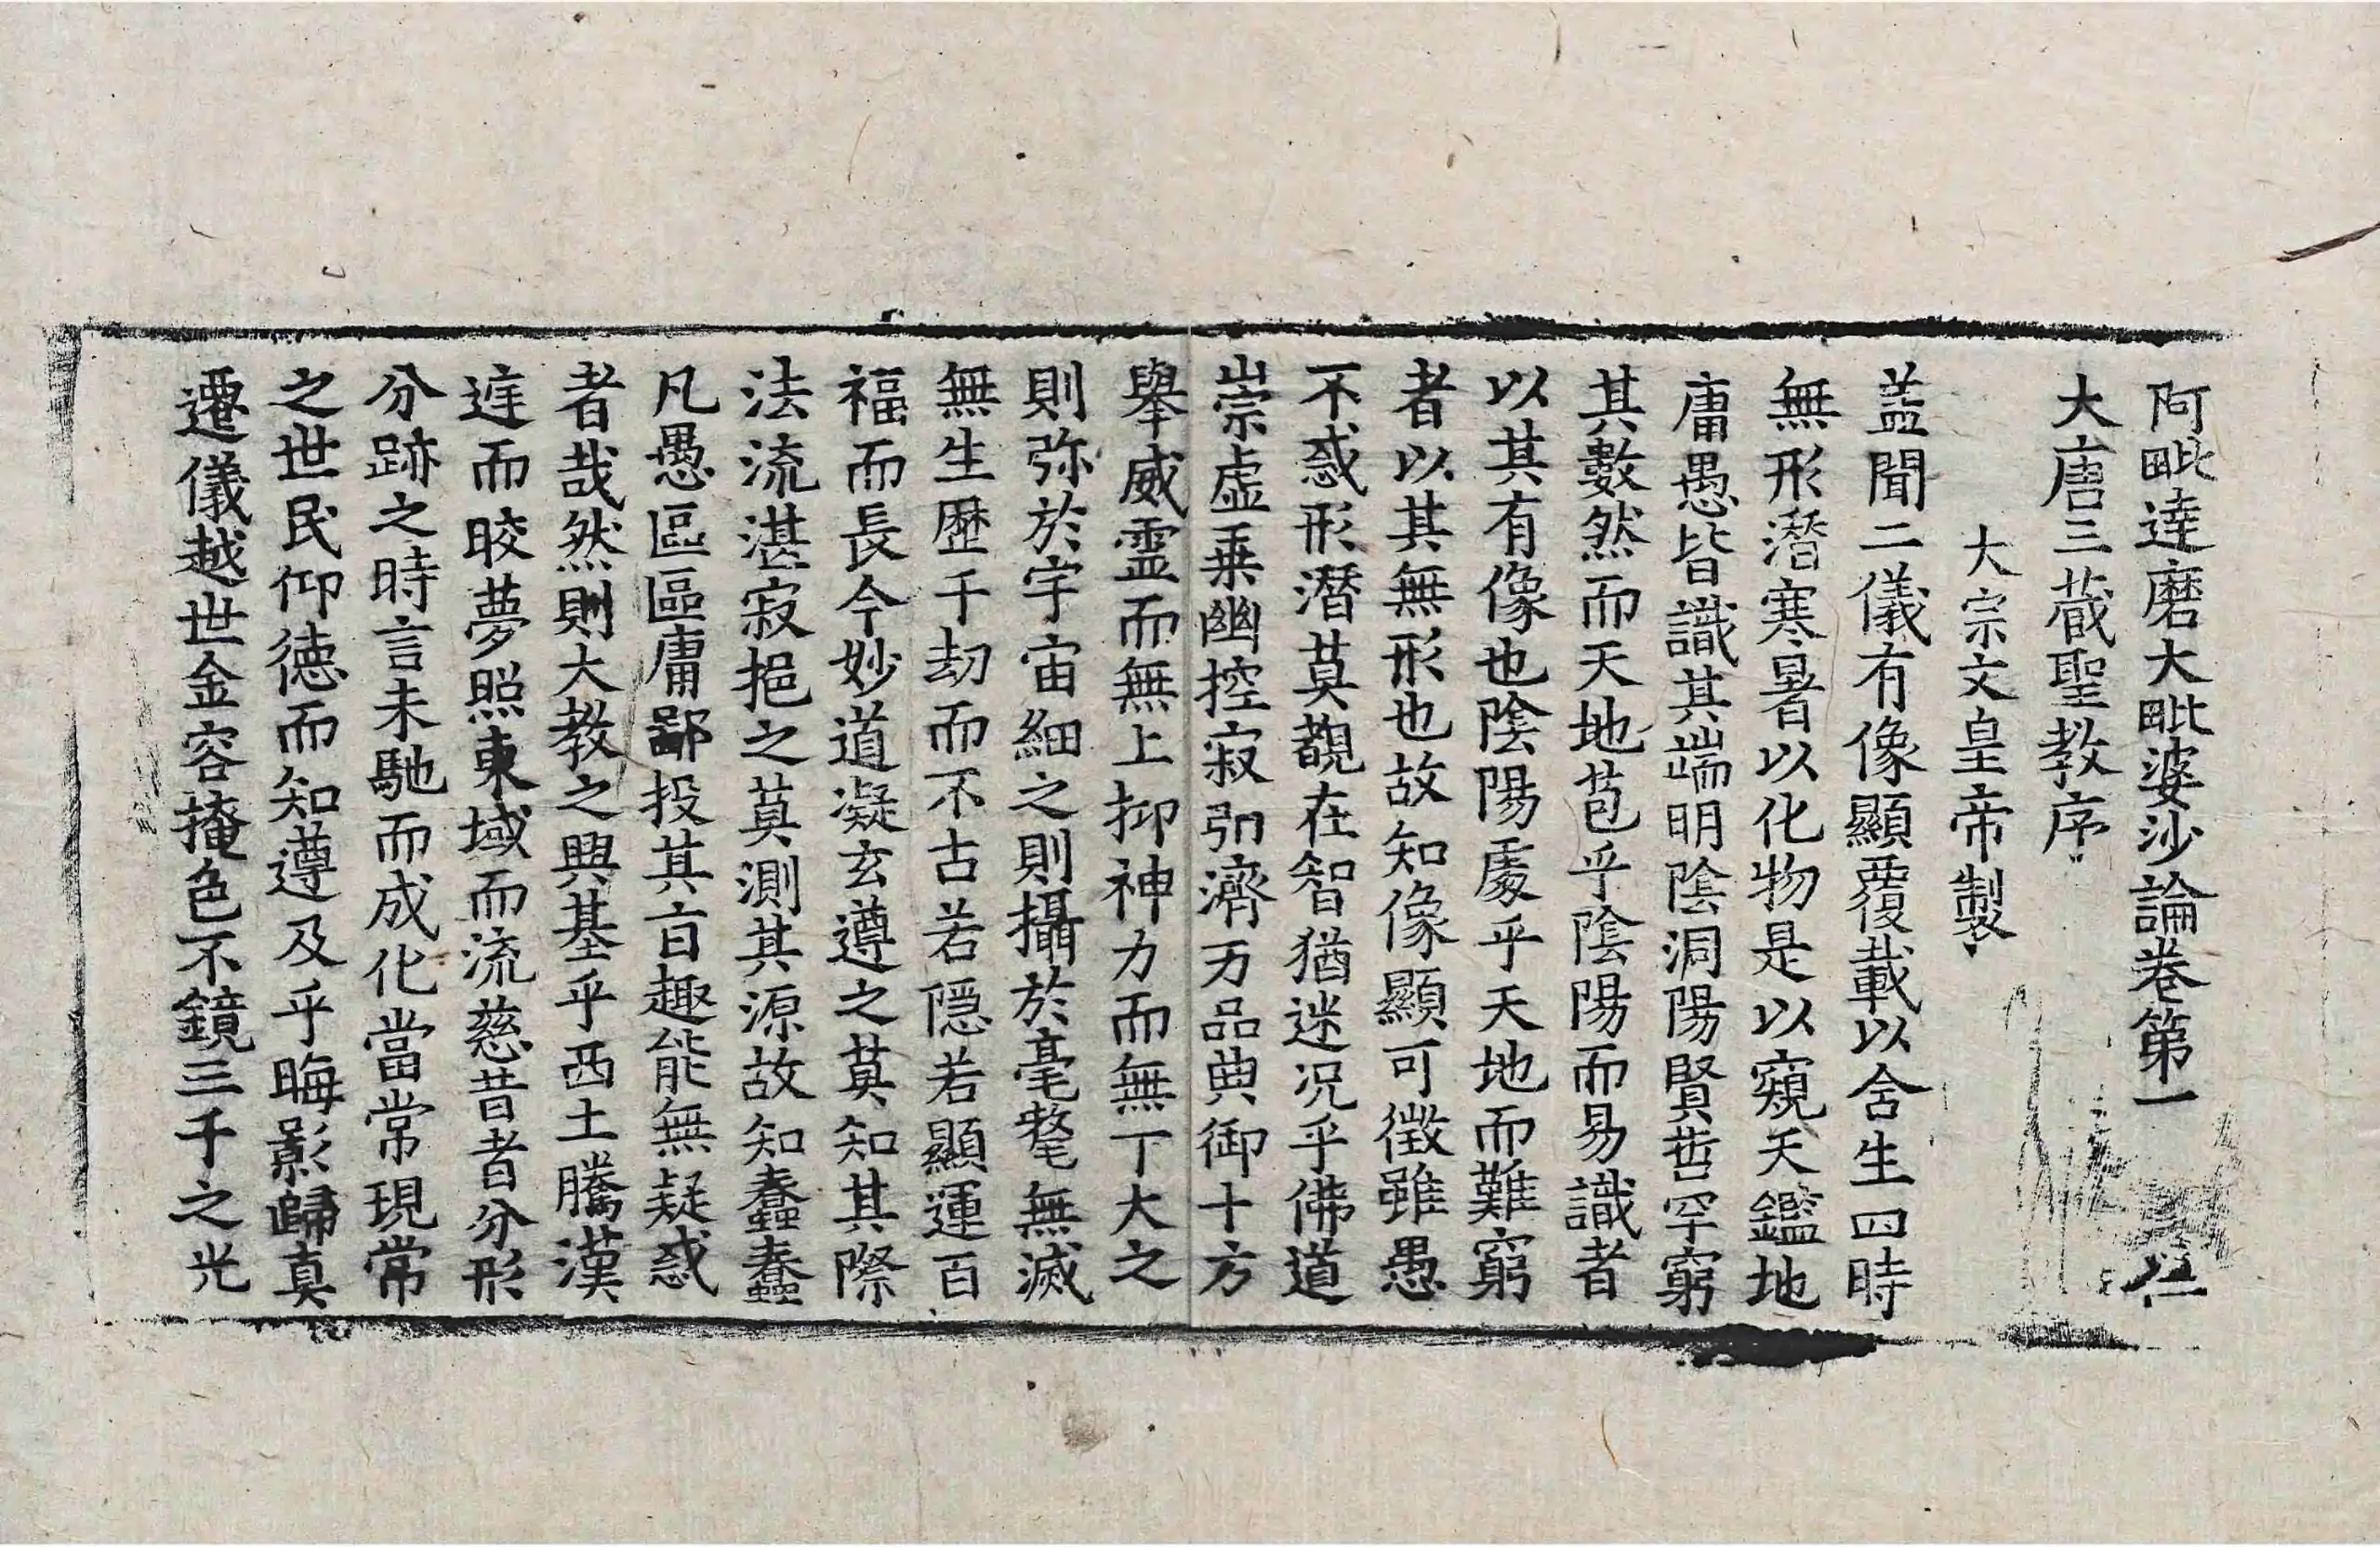 阿毗達磨大毗婆沙論卷第一 仁
大唐三藏聖教序
大宗文皇帝製
盖聞二儀有像顯覆載以含生四時
無形潛寒暑以化物是以窺天鑑地
庸愚皆識其端明陰洞陽賢哲罕窮
其數然而天地苞乎陰陽而易識者
以其有像也陰陽處乎天地而難窮
者以其無形也故知像顯可徵雖愚
不惑形潛莫覩在智猶迷况乎佛道
崇虛乗幽控寂引濟万品典御十方
舉威靈而無上抑神力而無下大之
則弥於宇宙細之則攝於毫氂無滅
無生歷千劫而不古若隱若顯運百
福而長今妙道凝玄遵之莫知其際
法流湛寂挹之莫測其源故知蠢蠢
凡愚區區庸鄙投其旨趣能無疑惑
者哉然則大教之興基乎西土騰漢
庭而皎夢照東域而流慈昔者分形
分跡之時言未馳而成化當常現常
之世民仰德而知遵及乎晦影歸真
遷儀越世金容掩色不鏡三千之光